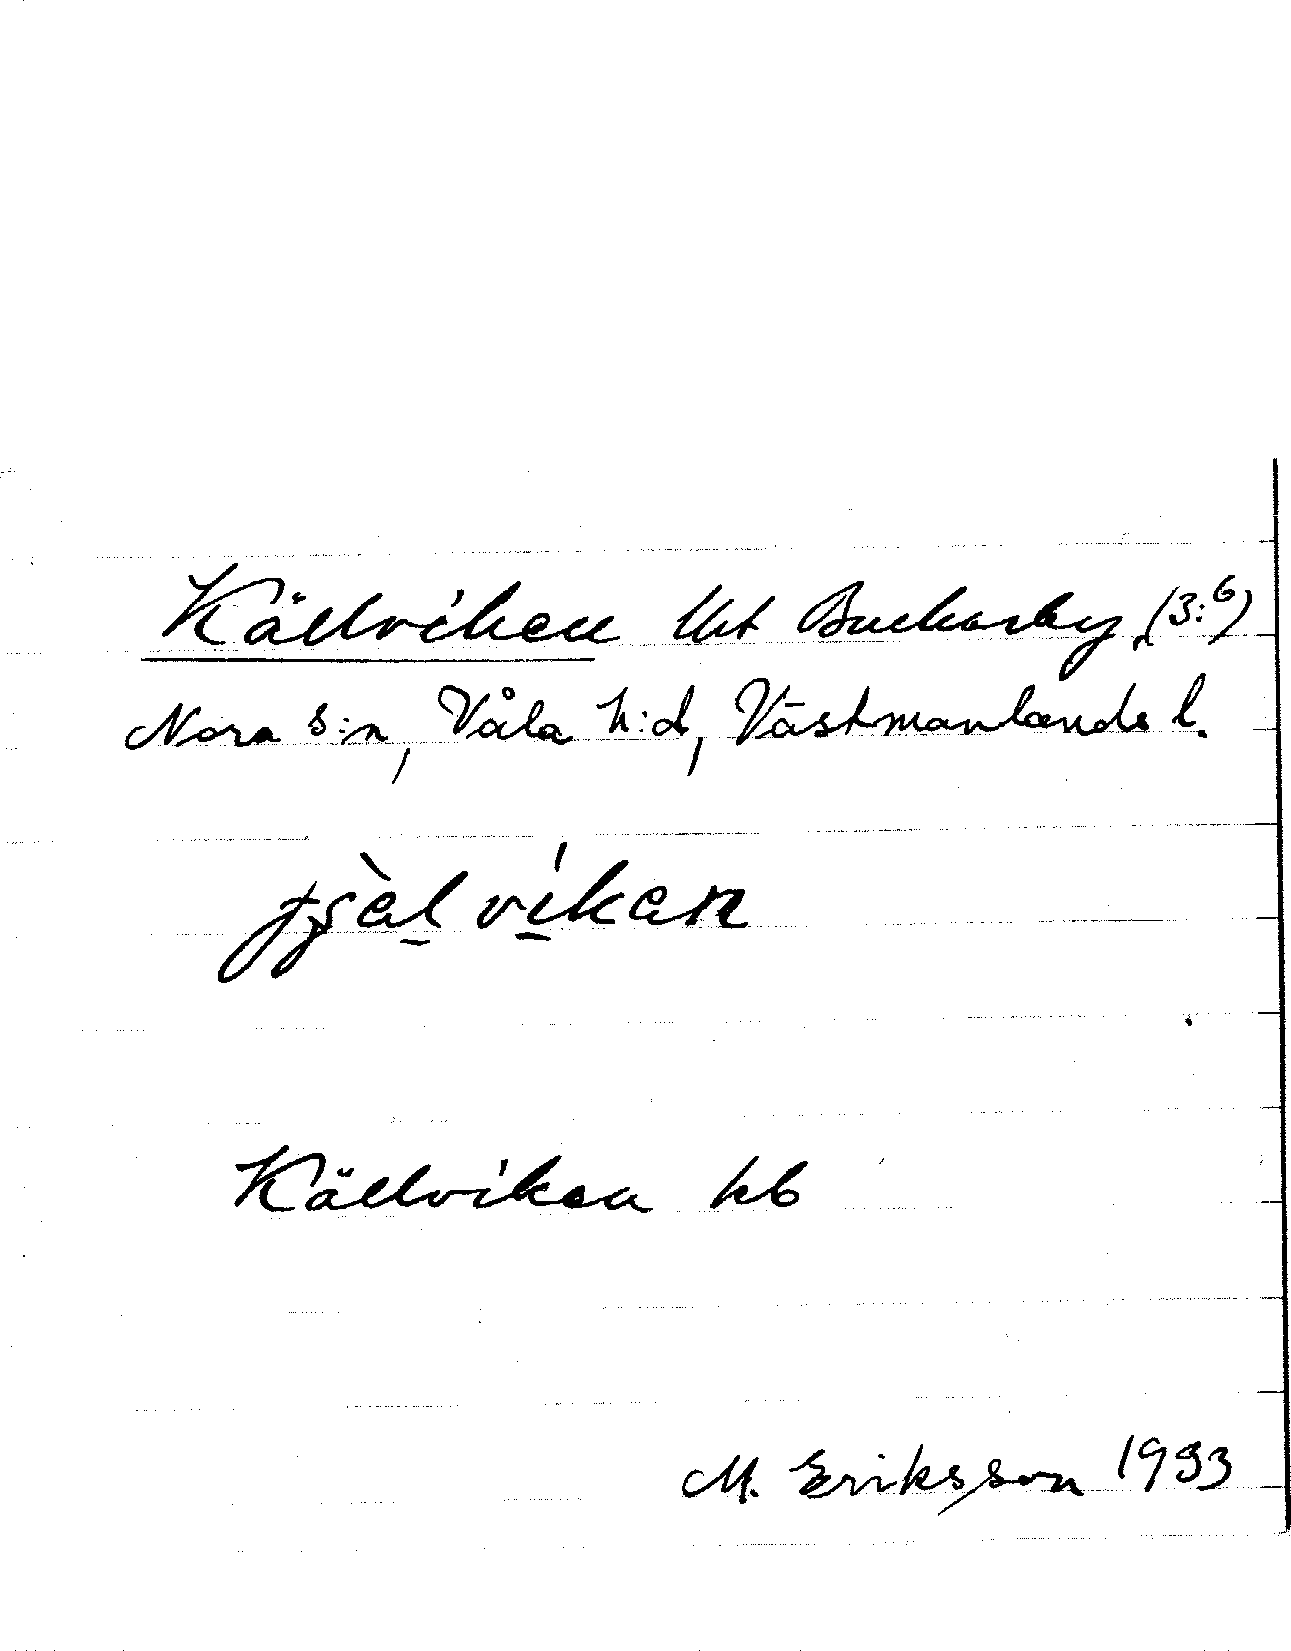 Källviken Urt Buckarby (3:6)
Nora s:n, Våla h:d, Västmanlands l.
tʃèl víkan
Källviken kb
M. Eriksson 1933